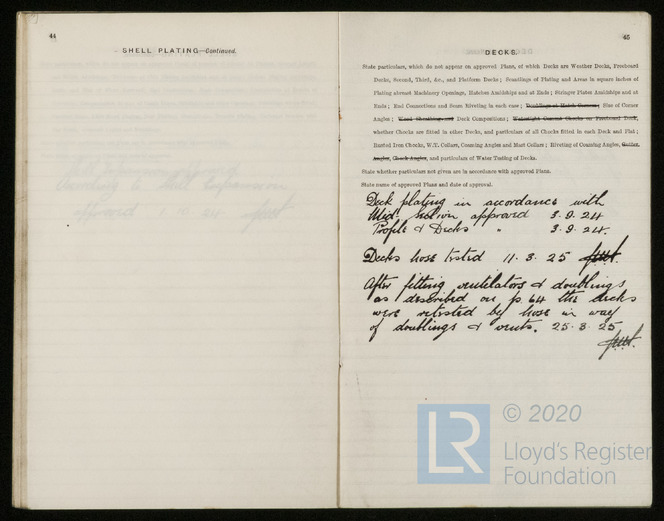 44
SHELL PLATING—Continued.
45
DECKS.
State particulars, which do not appear on approved Plans, of which Decks are Weather Decks, Freeboard
Decks, Second, Third, &c., and Platform Decks; Scantlings of Plating and Areas in square inches of
Plating abreast Machinery Openings, Hatches Amidships and at Ends; Stringer Plates Amidships and at
Ends; End Connections and Seam Riveting in each case; Doublings at Hatch Corners; Size of Corner
Angles; Wood Sheathing and Deck Compositions; Watertight Cement Chocks on Freeboard Deck,
whether Chocks are fitted in other Decks, and particulars of all Chocks fitted in each Deck and Flat;
Rusted Iron Chocks, W.T. Collars, Coaming Angles and Mast Collars; Riveting of Coaming Angles, Gutter
Angles, Chock Angles, and particulars of Water Testing of Decks.
State whether particulars not given are in accordance with approved Plans.
State name of approved Plans and date of approval.
Deck plating in accordance with
Mid. section approved 3.9.24
Profile & Decks " 3.9.24.
Decks hose tested 11.3.25
After fitting ventilators & doublings
as described on p. 64 the decks
were retested by hose in way
of doublings & vents. 25.3.25
LR
© 2020
Lloyd's Register
Foundation